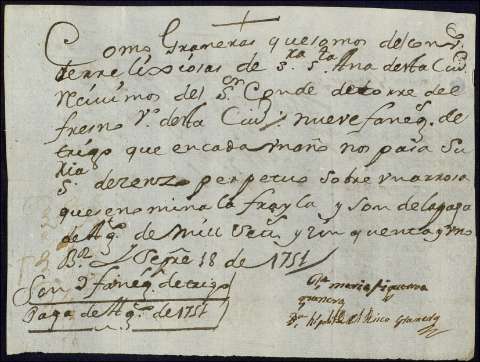 Como Graneras que somos del conv.to
de Relixiosas de S.ra S.ta Ana desta Ciu.d
Recivimos del S.or Conde de torre del
fresno V.o desta Ciu.d nueve faneg.s de
trigo que en cada un año nos paga Su
S.ria de zenzo perpetuo sobre una
que se nomina la frayla y son de la paga
de Ag.to de mill Set.s y zinquenta y uno
B.z y Sep.re 18 de 1751
Son 9 faneg.s de trigo
Paga de Ag.to de 1751
D.a maria figueroa
granera
D.a del Risco Granera